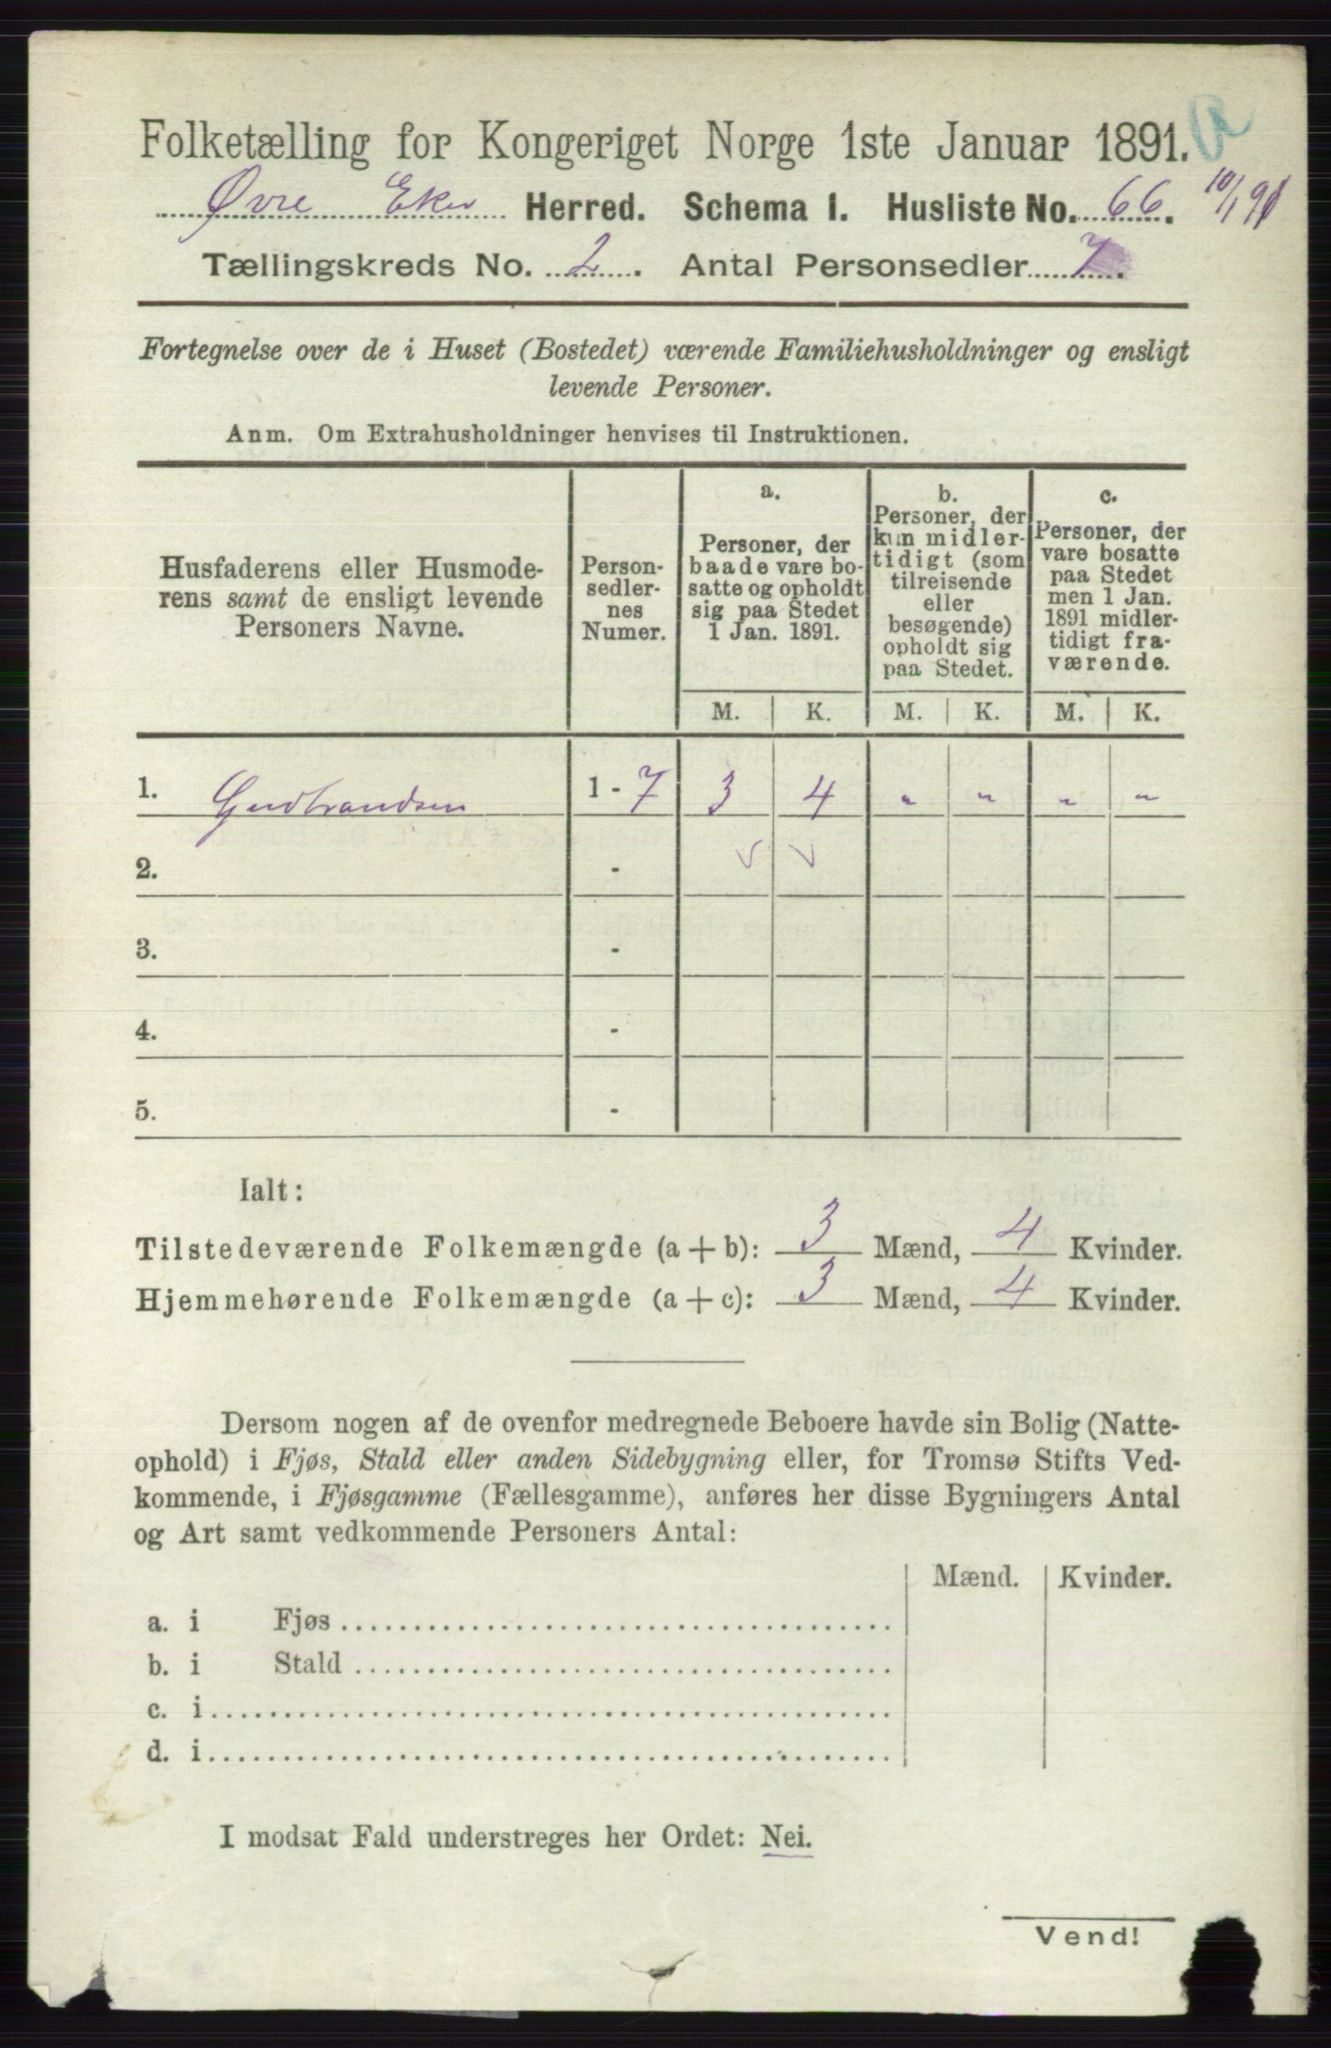 Folketælling for Kongeriget Norge 1ste Januar 1891.
Øvre Eker Herred. Schema I. Husliste No. 66.
Tællingskreds No. 2. Antal Personsedler 7.
Fortegnelse over de i Huset (Bostedet) værende Familiehusholdninger og ensligt
levende Personer.
Anm. Om Extrahusholdninger henvises til Instruktionen.
Husfaderens eller Husmode-
rens samt de ensligt levende
Personers Navne.
Person-
sedler-
nes
Numer.
a.
Personer, der
baade vare bo-
satte og opholdt
sig paa Stedet
1 Jan. 1891.
b.
Personer, der
kun midler-
tidigt (som
tilreisende
eller
besøgende)
opholdt sig
paa Stedet.
c.
Personer, der
vare bosatte
paa Stedet
men 1 Jan.
1891 midler-
tidigt fra-
værende.
M. K. M. K. M. K.
1. Gudbrandsen 1 - 7 3 4 „ „ „ „
2. -
3. -
4. -
5. -
Ialt:
Tilstedeværende Folkemængde (a + b): 3 Mænd, 4 Kvinder.
Hjemmehørende Folkemængde (a + c): 3 Mænd, 4 Kvinder.
Dersom nogen af de ovenfor medregnede Beboere havde sin Bolig (Natte-
ophold) i Fjøs, Stald eller anden Sidebygning eller, for Tromsø Stifts Ved-
kommende, i Fjøsgamme (Fællesgamme), anføres her disse Bygningers Antal
og Art samt vedkommende Personers Antal:
Mænd. Kvinder.
a. i Fjøs
b. i Stald
c. i
d. i
I modsat Fald understreges her Ordet: Nei.
Vend!